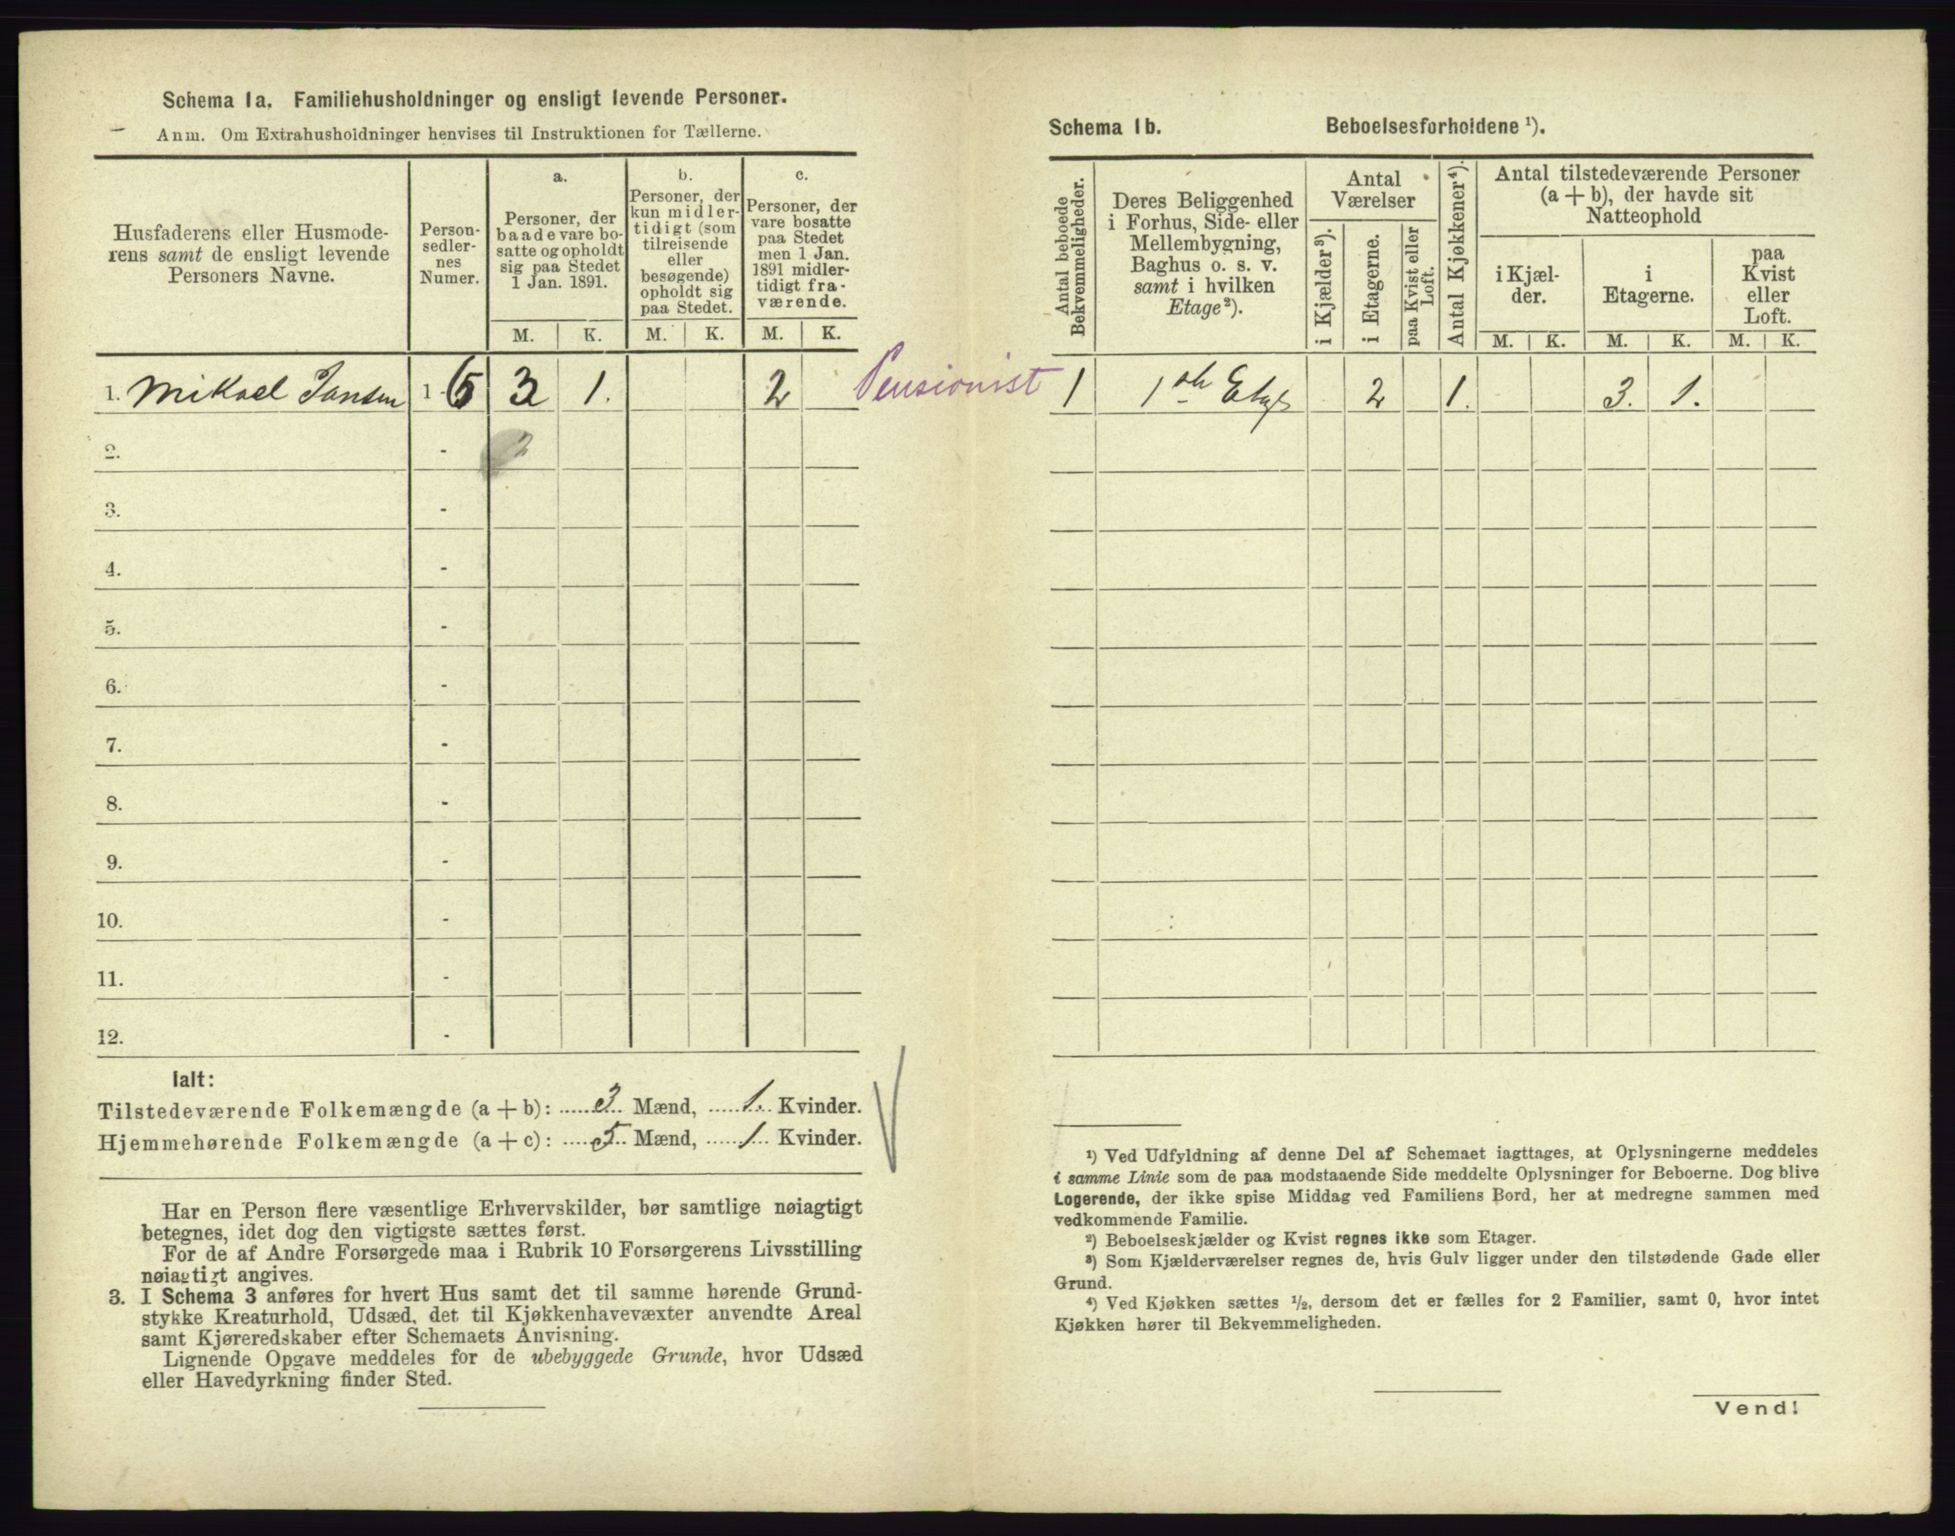 Schema 1a. Familiehusholdninger og ensligt levende Personer.
Anm. Om Extrahusholdninger henvises til Instruktionen for Tællerne.
Husfaderens eller Husmode-
rens samt de ensligt levende
Personers Navne.
Person-
sedler-
nes
Numer.
a.
Personer, der
baade vare bo-
satte og opholdt
sig paa Stedet
1 Jan. 1891.
M. K.
b.
Personer, der
kun midler-
tidigt (som
tilreisende
eller
besøgende)
opholdt sig
paa Stedet.
M. K.
c.
Personer, der
vare bosatte
paa Stedet
men 1 Jan.
1891 midler-
tidigt fra-
værende.
M. K.
1. Mikael Jansen 1 - 6 3 1. 2 Pensionist
2. - 2
3. -
4. -
5. -
6. -
7. -
8. -
9. -
10. -
11. -
12. -
Ialt:
Tilstedeværende Folkemængde (a + b): 3 Mænd, 1. Kvinder.
Hjemmehørende Folkemængde (a + c): 5 Mænd, 1 Kvinder.
Har en Person flere væsentlige Erhvervskilder, bør samtlige nøiagtigt
betegnes, idet dog den vigtigste sættes først.
For de af Andre Forsørgede maa i Rubrik 10 Forsørgerens Livsstilling
nøiagtigt angives.
3. I Schema 3 anføres for hvert Hus samt det til samme hørende Grund-
stykke Kreaturhold, Udsæd, det til Kjøkkenhavevæxter anvendte Areal
samt Kjøreredskaber efter Schemaets Anvisning.
Lignende Opgave meddeles for de ubebyggede Grunde, hvor Udsæd
eller Havedyrkning finder Sted.
Schema 1b. Beboelsesforholdene ¹).
Antal beboede
Bekvemmeligheder.
Deres Beliggenhed
i Forhus, Side- eller
Mellembygning,
Baghus o. s. v.
samt i hvilken
Etage²).
Antal
Værelser
i Kjælder³).
i Etagerne.
paa Kvist eller
Loft.
Antal Kjøkkener⁴).
Antal tilstedeværende Personer
(a + b), der havde sit
Natteophold
i Kjæl-
der.
i
Etagerne.
paa
Kvist
eller
Loft.
M. K. M. K. M. K.
1 1ste Etage 2 1. 3. 1.
¹) Ved Udfyldning af denne Del af Schemaet iagttages, at Oplysningerne meddeles
i samme Linie som de paa modstaaende Side meddelte Oplysninger for Beboerne. Dog blive
Logerende, der ikke spise Middag ved Familiens Bord, her at medregne sammen med
vedkommende Familie.
²) Beboelseskjælder og Kvist regnes ikke som Etager.
³) Som Kjælderværelser regnes de, hvis Gulv ligger under den tilstødende Gade eller
Grund.
⁴) Ved Kjøkken sættes ½, dersom det er fælles for 2 Familier, samt 0, hvor intet
Kjøkken hører til Bekvemmeligheden.
Vend!